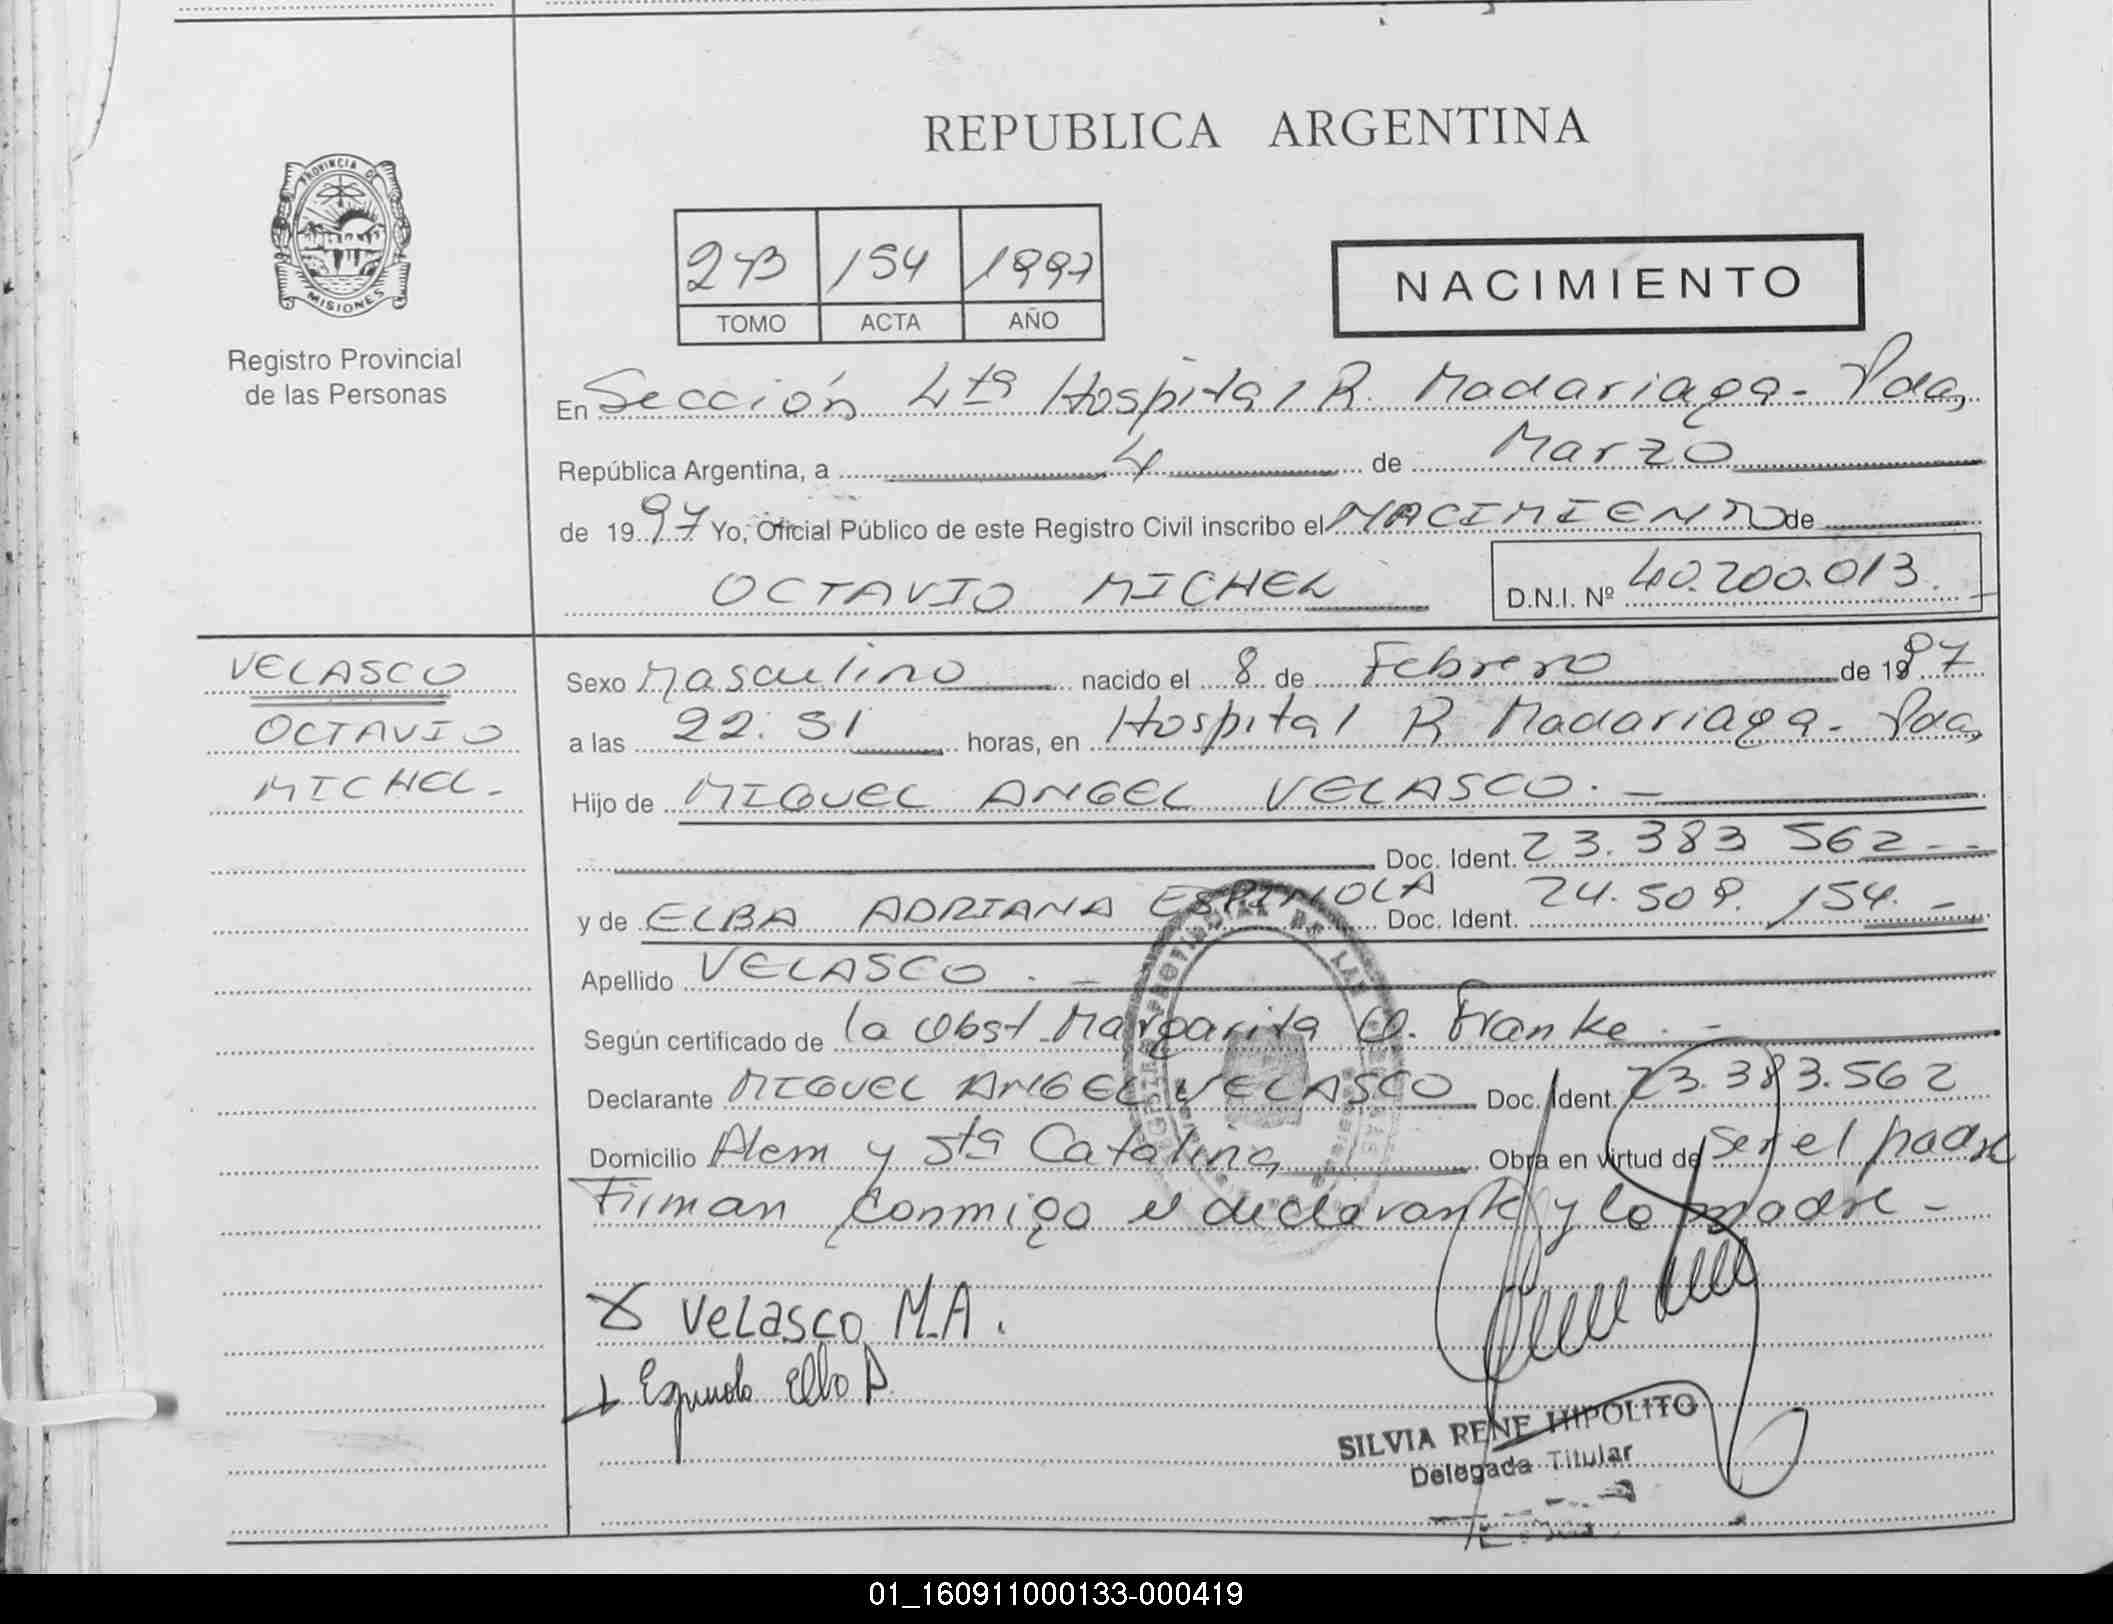 REPUBLICA ARGENTINA
PROVINCIA DE
MISIONES
Registro Provincial
de las Personas
273 154 1997
TOMO ACTA AÑO
NACIMIENTO
En Sección 4ta Hospital R. Madariaga - Pdas,
República Argentina, a 4 de Marzo
de 1997 Yo, Oficial Público de este Registro Civil inscribo el NACIMIENTO de
OCTAVIO MICHEL D.N.I. Nº 40.200.013.
VELASCO
OCTAVIO
MICHEL-
Sexo Masculino nacido el 8 de Febrero de 1997
a las 22:51 horas, en Hospital R Madariaga - Pdas,
Hijo de MIGUEL ANGEL VELASCO. -
Doc. Ident. 23.383 562 - -
y de ELBA ADRIANA ESPINOLA Doc. Ident. 24.509.154. -
Apellido VELASCO . -
Según certificado de la Obst. Margarita O. Franke. -
Declarante MIGUEL ANGEL VELASCO Doc. Ident. 23.383.562
Domicilio Alem y Sta Catalina Obra en virtud de Ser el padre
Firman conmigo el declarante y la madre -
Velasco M.A.
Espinola Elba A.
SILVIA RENE HIPOLITO
Delegada Titular
01_160911000133-000419